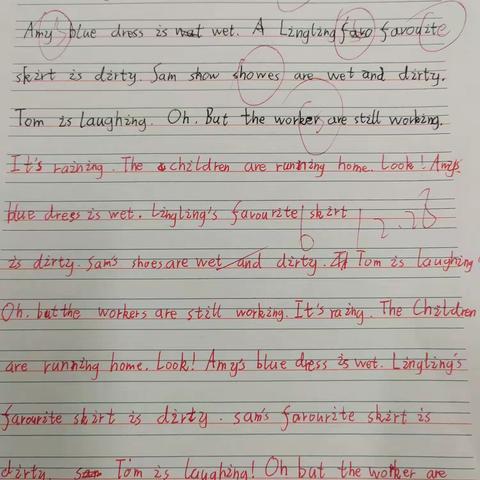 Amy's blue dress is wet. A Lingling favo favoudite
skirt is dirty. Sam show showes are wet and dirty.
Tom is laughing. Oh. But the worker are still working.
It's raining. The children are running home. Look! Amy's
blue dress is wet. Lingling's favourite skirt
12.28
is dirty. Sam's shoes are wet and dirty. Tom is laughing
Oh. but the workers are still working. It's raing. The Children
are running home. Look! Amy's blue dress is wet. Lingling's
farourite skirt is dirty. sam's farourite skirt is
dirty. Tom is laughing! Oh but the worker are